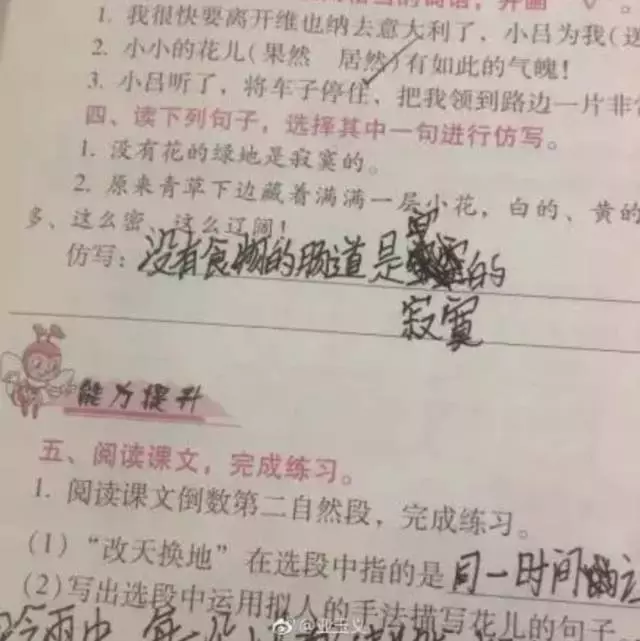 1. 我很快要离开维也纳去意大利了，小吕为我(送
2. 小小的花儿(果然 居然)有如此的气魄！
3. 小吕听了，将车子停住，把我领到路边一片非常
四、读下列句子，选择其中一句进行仿写。
1. 没有花的绿地是寂寞的。
2. 原来青草下边藏着满满一层小花，白的、黄的
多、这么密、这么辽阔！
仿写：没有食物的肠道是的
寂寞
能力提升
五、阅读课文，完成练习。
1. 阅读课文倒数第二自然段，完成练习。
(1)“改天换地”在选段中指的是同一时间
(2)写出选段中运用拟人的手法描写花儿的句子
雨中